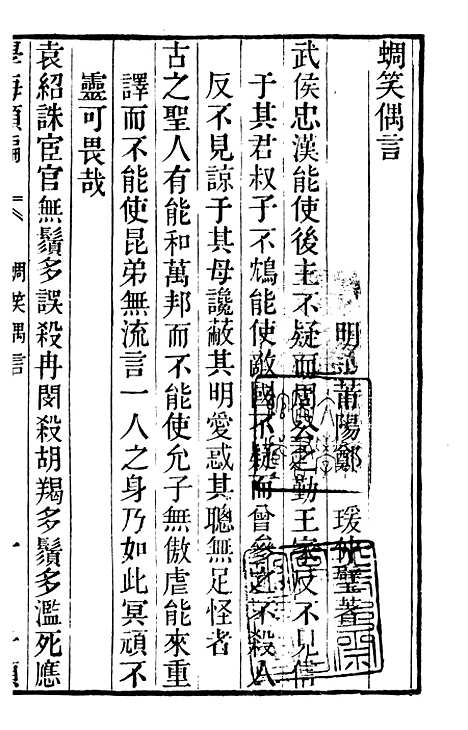 蜩笑偶言
明 莆陽鄭 瑗 璧著
武侯忠漢能使後主不疑而周公之勤王家反不見信
于其君叔子不鴆能使敵國不疑而曾參之不殺人
反不見諒于其母讒蔽其明愛惑其聰無足怪者
古之聖人有能和萬邦而不能使允子無傲虐能來重
譯而不能使昆弟無流言一人之身乃如此冥頑不
靈可畏哉
袁紹誅宦官無鬚多誤殺冉閔殺胡羯多鬚多濫死應
學海類編 蜩笑偶言 一